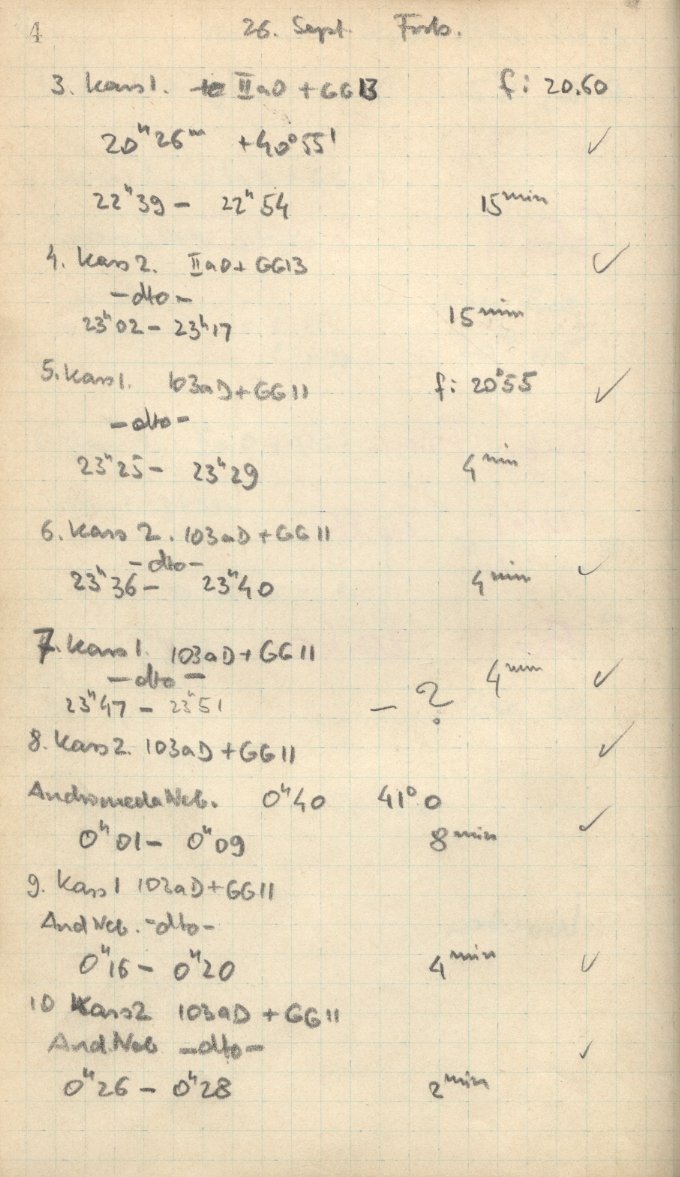 4 26. Sept. Forts.
3. Kass 1. IIaO + GG13 f: 20.60
20ʰ26ᵐ +40°55' ✓
22ʰ39 – 22ʰ54 15 min
4. Kass 2. IIaO + GG13 ✓
– dto –
23ʰ02 – 23ʰ17 15 min
5. Kass 1. 103aD + GG11 f: 20.55 ✓
– dto –
23ʰ25 – 23ʰ29 4 min
6. Kass 2. 103aD + GG11
– dto –
23ʰ36 – 23ʰ40 4 min ✓
7. Kass 1. 103aD + GG11
– dto – 4 min ✓
23ʰ47 – 23ʰ51 – ?
8. Kass 2. 103aD + GG11 ✓
Andromeda Neb. 0ʰ40 41°0
0ʰ01 – 0ʰ09 8 min ✓
9. Kass 1 103aD + GG11
And Neb. – dto –
0ʰ16 – 0ʰ20 4 min ✓
10 Kass 2 103aD + GG11
And. Neb – dto – ✓
0ʰ26 – 0ʰ28 2 min